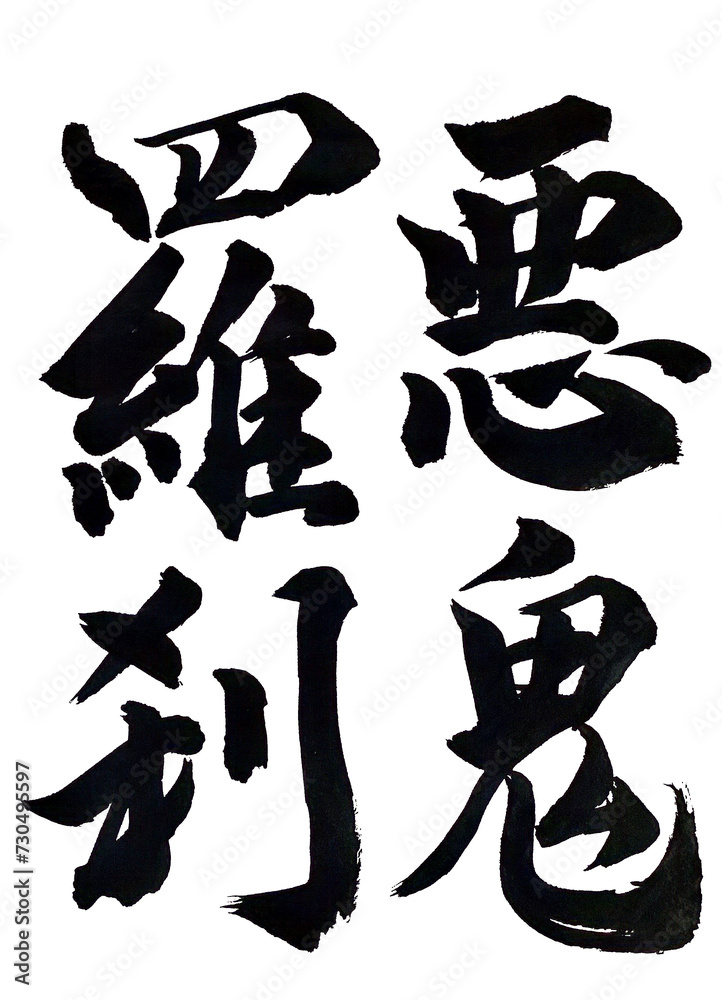 悪鬼
羅刹
Adobe Stock | #730495597